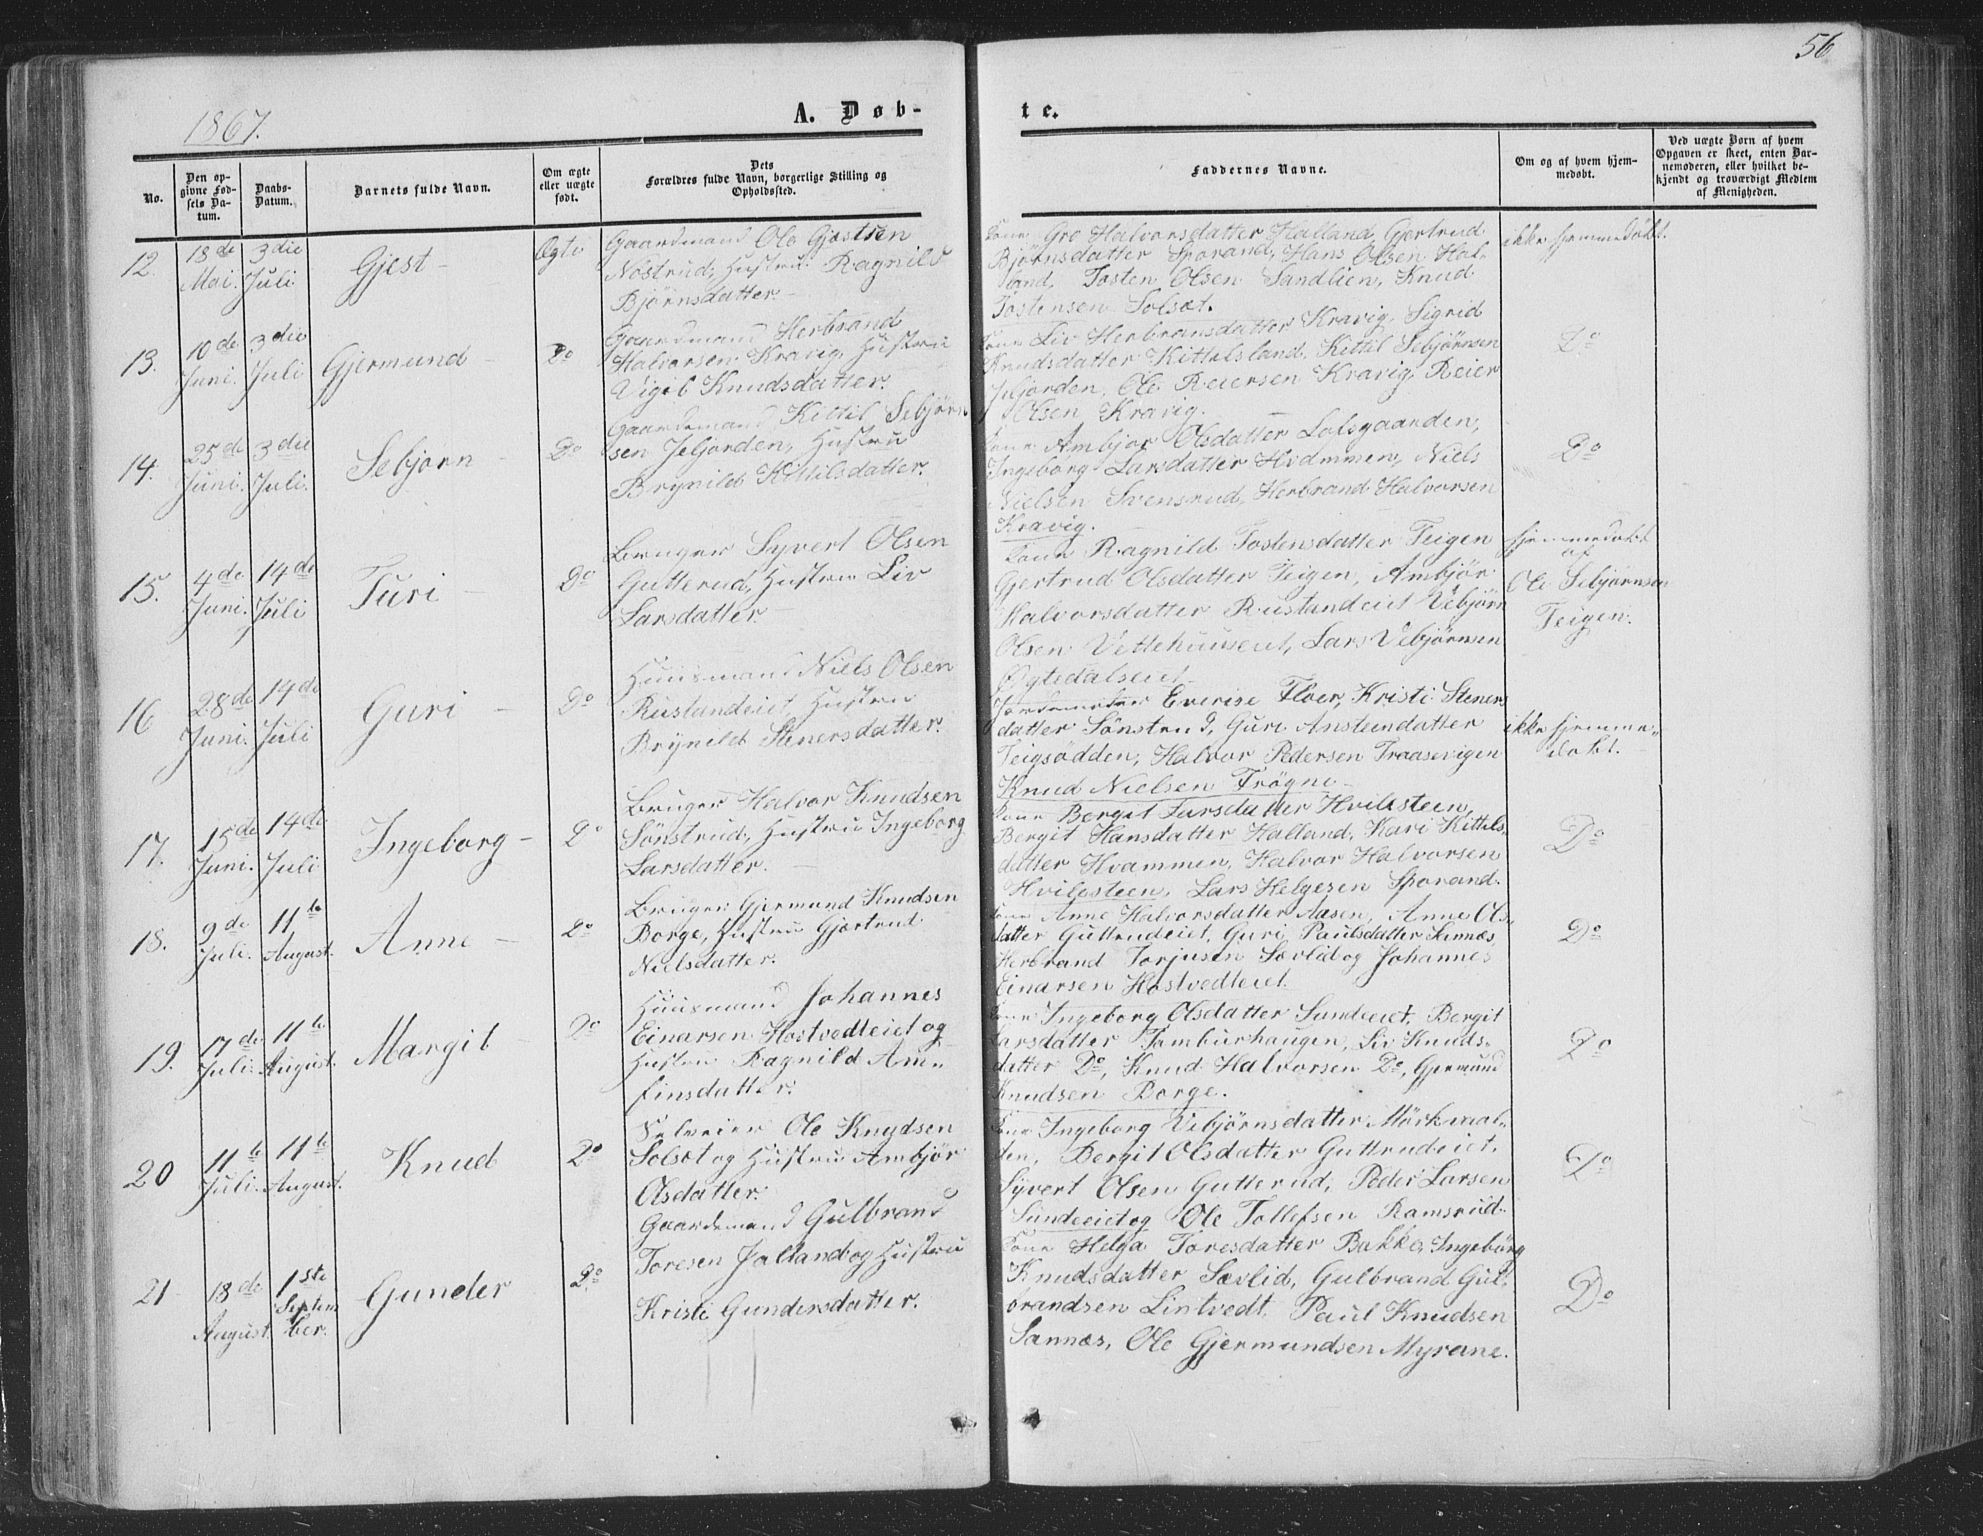 56
1867.
A. Døb-
te.
No.
Den op-
givne Fød-
sels Da-
tum.
Daabs-
Datum.
Barnets fulde Navn.
Om ægte
eller uægte
født.
Dets
Forældres fulde Navn, borgerlige Stilling og
Opholdssted.
Faddernes Navne.
Om og af hvem hjem-
medøbt.
Ved uægte Børn af hvem
Opgaven er skeet, enten Bar-
nemoderen, eller hvilket be-
kjendt og troværdigt Medlem
af Menigheden.
12.
18de
Mai.
3die
Juli
Gjest -
Ægte
Gaardmand Ole Gjestsen
Nøstrud, Hustru Ragnild
Bjørnsdatter. -
Kone Gro Halvorsdatter Halland, Gjertrud
Bjørnsdatter Sporand, Hans Olsen Hal-
land, Tosten Olsen Sandlien, Knud
Tostensen Solsæt.
ikke hjemmedøbt.
13.
10de
Juni.
3die
Juli
Gjermund -
Do
Gaardmand Herbrand
Halvorsen Kravig, Hustru
Vigeb Knudsdatter.
Kone Liv Herbransdatter Kravig, Sigrid
Knudsdatter Kittelsland, Kittil Sebjørnsen
Jeljorden, Ole Reiersen Kravig, Reier
Olsen Kravig.
Do
14.
25de
Juni.
3die
Juli.
Sebjørn -
Do
Gaardemand Kittil Sebjørn
sen Jeljorden, Hustru
Brynild Kittilsdatter.
Kone Ambjør Olsdatter Lolsgaarden,
Ingeborg Larsdatter Hvammen, Niels
Nielsen Svensrud, Herbrand Halvorsen
Kravig.
Do
15.
4de
Juni.
14de
Juli
Turi -
Do
Bruger Syvert Olsen
Gutterud, Hustru Liv
Larsdatter.
Kone Ragnild Tostensdatter Teigen
Gjertrud Olsdatter Teigen, Ambjør
Halvorsdatter Rustandeiet Vebjørn
Olsen Vettehuuseiet, Lars Vebjørnsen
Øgtedalseiet.
hjemmedøbt
af
Ole Sebjørnsen
Teigen.
16
28de
Juni.
14de
Juli
Guri -
Do
Huusmand Niels Olsen
Rustandeiet Hustru
Brynild Stenersdatter.
Jordemoder Everise Floer, Kristi Steners
datter Sønstrud, Guri Ansteindatter
Teigsødden, Halvor Pedersen Traasevigen
Knud Nielsen Frøgne -
ikke hjemme-
døbt.
17.
15de
Juni.
14de
Juli
Ingeborg -
Do
Bruger Halvor Knudsen
Sønstrud, Hustru Ingeborg
Larsdatter. -
Kone Bergit Larsdatter Hvilesteen,
Bergit Hansdatter Halland, Kari Kittels,
datter Hvammen, Halvor Halvorsen
Hvilesteen, Lars Helgesen Sporand.
Do
18.
9de
Juli.
11te
August.
Anne -
Do
Bruger Gjermund Knudsen
Borge, Hustru Gjertrud
Nielsdatter.
Kone Anne Halvorsdatter Aasen, Anne Ols,
datter Guttrudeiet, Guri Paulsdatter Sannæs,
Herbrand Torjusen Sævlid og Johannes
Einarsen Hostvedteiet.
Do
19.
17de
Juli.
11te
August.
Margit -
Do
Huusmand Johannes
Einarsen Hostvedteiet og
Hustru Ragnild Am-
finsdatter.
Kone Ingeborg Olsdatter Sundeeiet, Bergit
Larsdatter Tamburhaugen, Liv Knuds-
datter Do, Knud Halvorsen Do, Gjermund
Knudsen Borge.
Do
20
11te
Juli.
11te
August.
Knud
Do
Selveier Ole Knudsen
Solsæt og Hustru Ambjør
Olsdatter.
Kone Ingeborg Vebjørnsdatter Mørkvaal-
den, Bergit Olsdatter Guttrudeiet,
Syvert Olsen Gutterud, Peder Larsen
Sundeeiet og Ole Tollefsen Ramsrud.
Do
21
18de
August.
1ste
Septem
ber.
Gunder
Do
Gaardemand Gulbrand
Toresen Jalland og Hustru
Kristi Gundersdatter.
Kone Helga Toresdatter Bakke, Ingeborg
Knudsdatter Sævlid, Gulbrand Gul-
brandsen Lintvedt, Paul Knudsen
Sannæs, Ole Gjermundsen Myrane.
Do